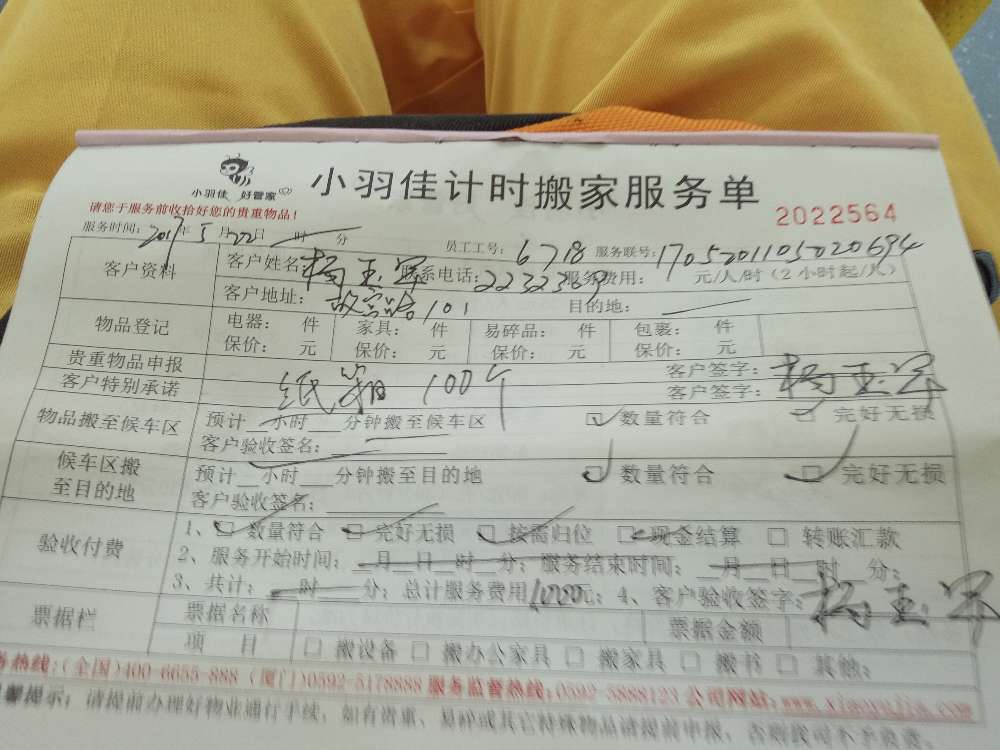 小羽佳 好管家
小羽佳计时搬家服务单
2022564
请您于服务前收拾好您的贵重物品!
服务时间: 2017年5月22日 时 分 员工工号: 6718 服务联号: 1705201105020694
客户资料 客户姓名: 杨玉军 联系电话: 2232389 服务费用: 元/人/时(2小时起/人)
客户地址: 故宫路101 目的地:
物品登记 电器: 件 家具: 件 易碎品: 件 包裹: 件
保价: 元 保价: 元 保价: 元 保价: 元
贵重物品申报 客户签字: 杨玉军
客户特别承诺 纸箱 100个 客户签字:
物品搬至候车区 预计 小时 分钟搬至候车区 数量符合 完好无损
客户验收签名:
候车区搬至目的地 预计 小时 分钟搬至目的地 数量符合 完好无损
客户验收签名:
验收付费 1、数量符合 完好无损 按需归位 现金结算 转账汇款
2、服务开始时间: 月 日 时 分; 服务结束时间: 月 日 时 分;
3、共计: 时 分; 总计服务费用1000元; 4、客户验收签字: 杨玉军
票据栏 票据名称 票据金额
项 目 搬设备 搬办公家具 搬家具 搬书 其他:
务热线:(全国)400-6655-888 (厦门)0592-5178888 服务监督热线:0592-5888123 公司网站:www.xiaoyujia.com
馨提示: 请提前办理好物业通行手续, 如有贵重、易碎或其它特殊物品请提前申报, 否则我司不予负责。